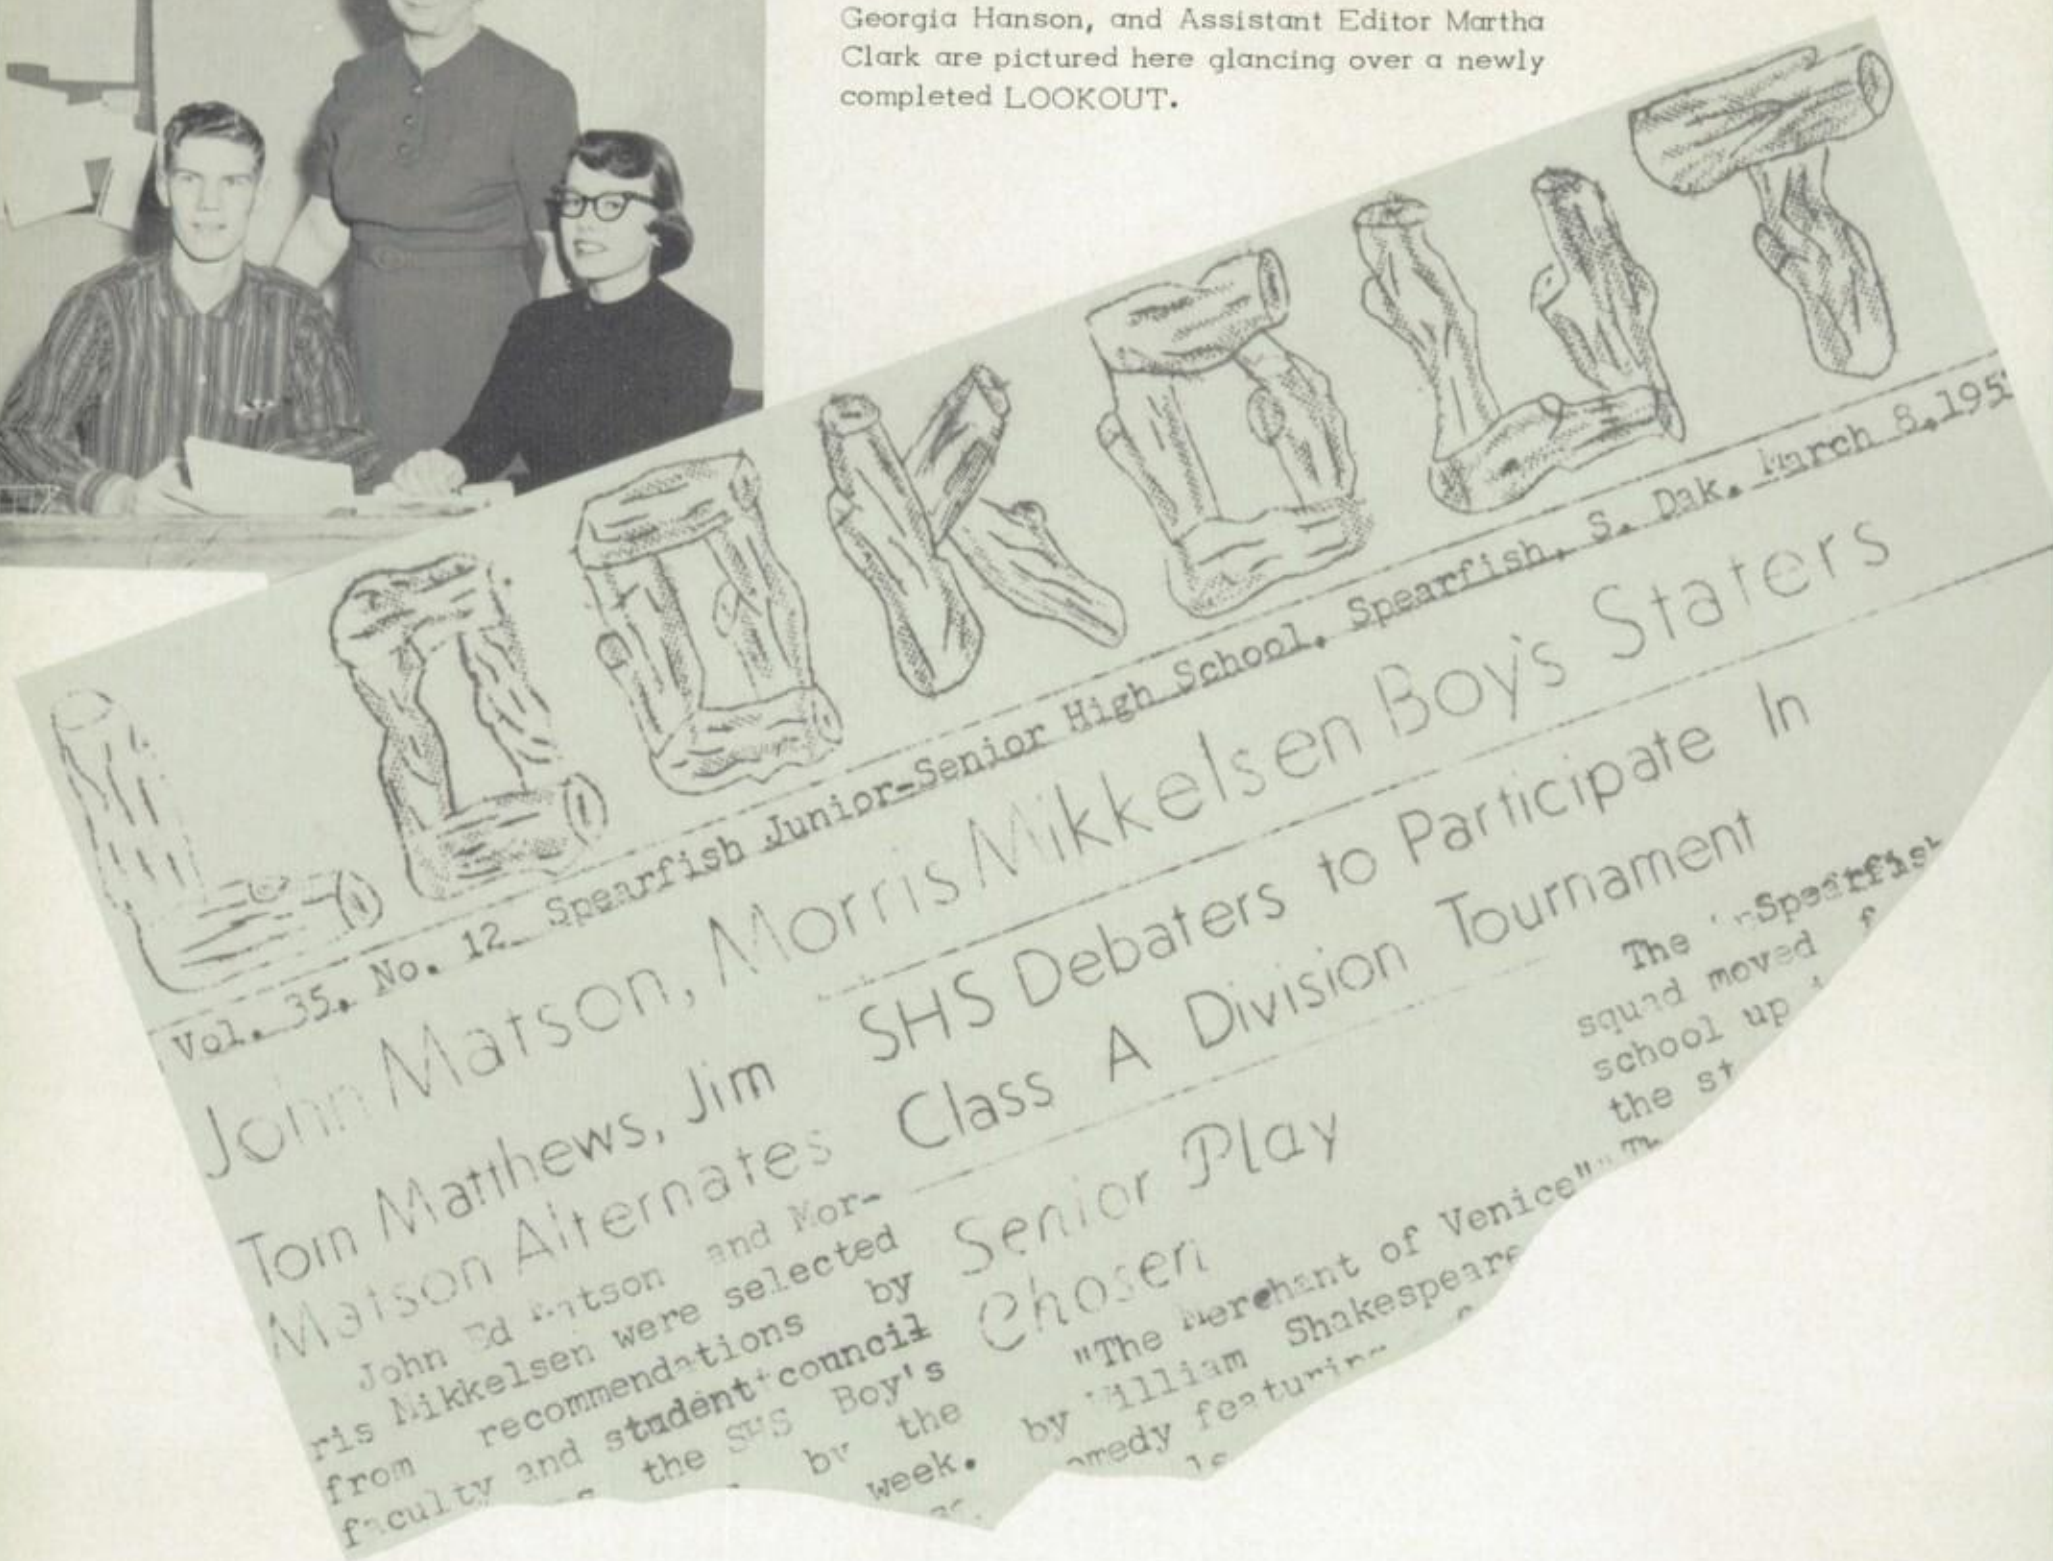 Georgia Hanson, and Assistant Editor Martha
Clark are pictured here glancing over a newly
completed LOOKOUT.
LOOKOUT
Vol. 35, No. 12 Spearfish Junior-Senior High School, Spearfish, S. Dak. March 8, 195
John Matson, Morris Mikkelsen Boy's Staters
Tom Matthews, Jim
Matson Alternates
John Ed Matson and Mor-
ris Mikkelsen were selected
from recommendations by
faculty and student council
the SHS Boy's
by the
week.
SHS Debaters to Participate In
Class A Division Tournament
Senior Play
Chosen
"The Merchant of Venice"
by William Shakespeare
featuring
The Spearfish
squad moved
school up
the